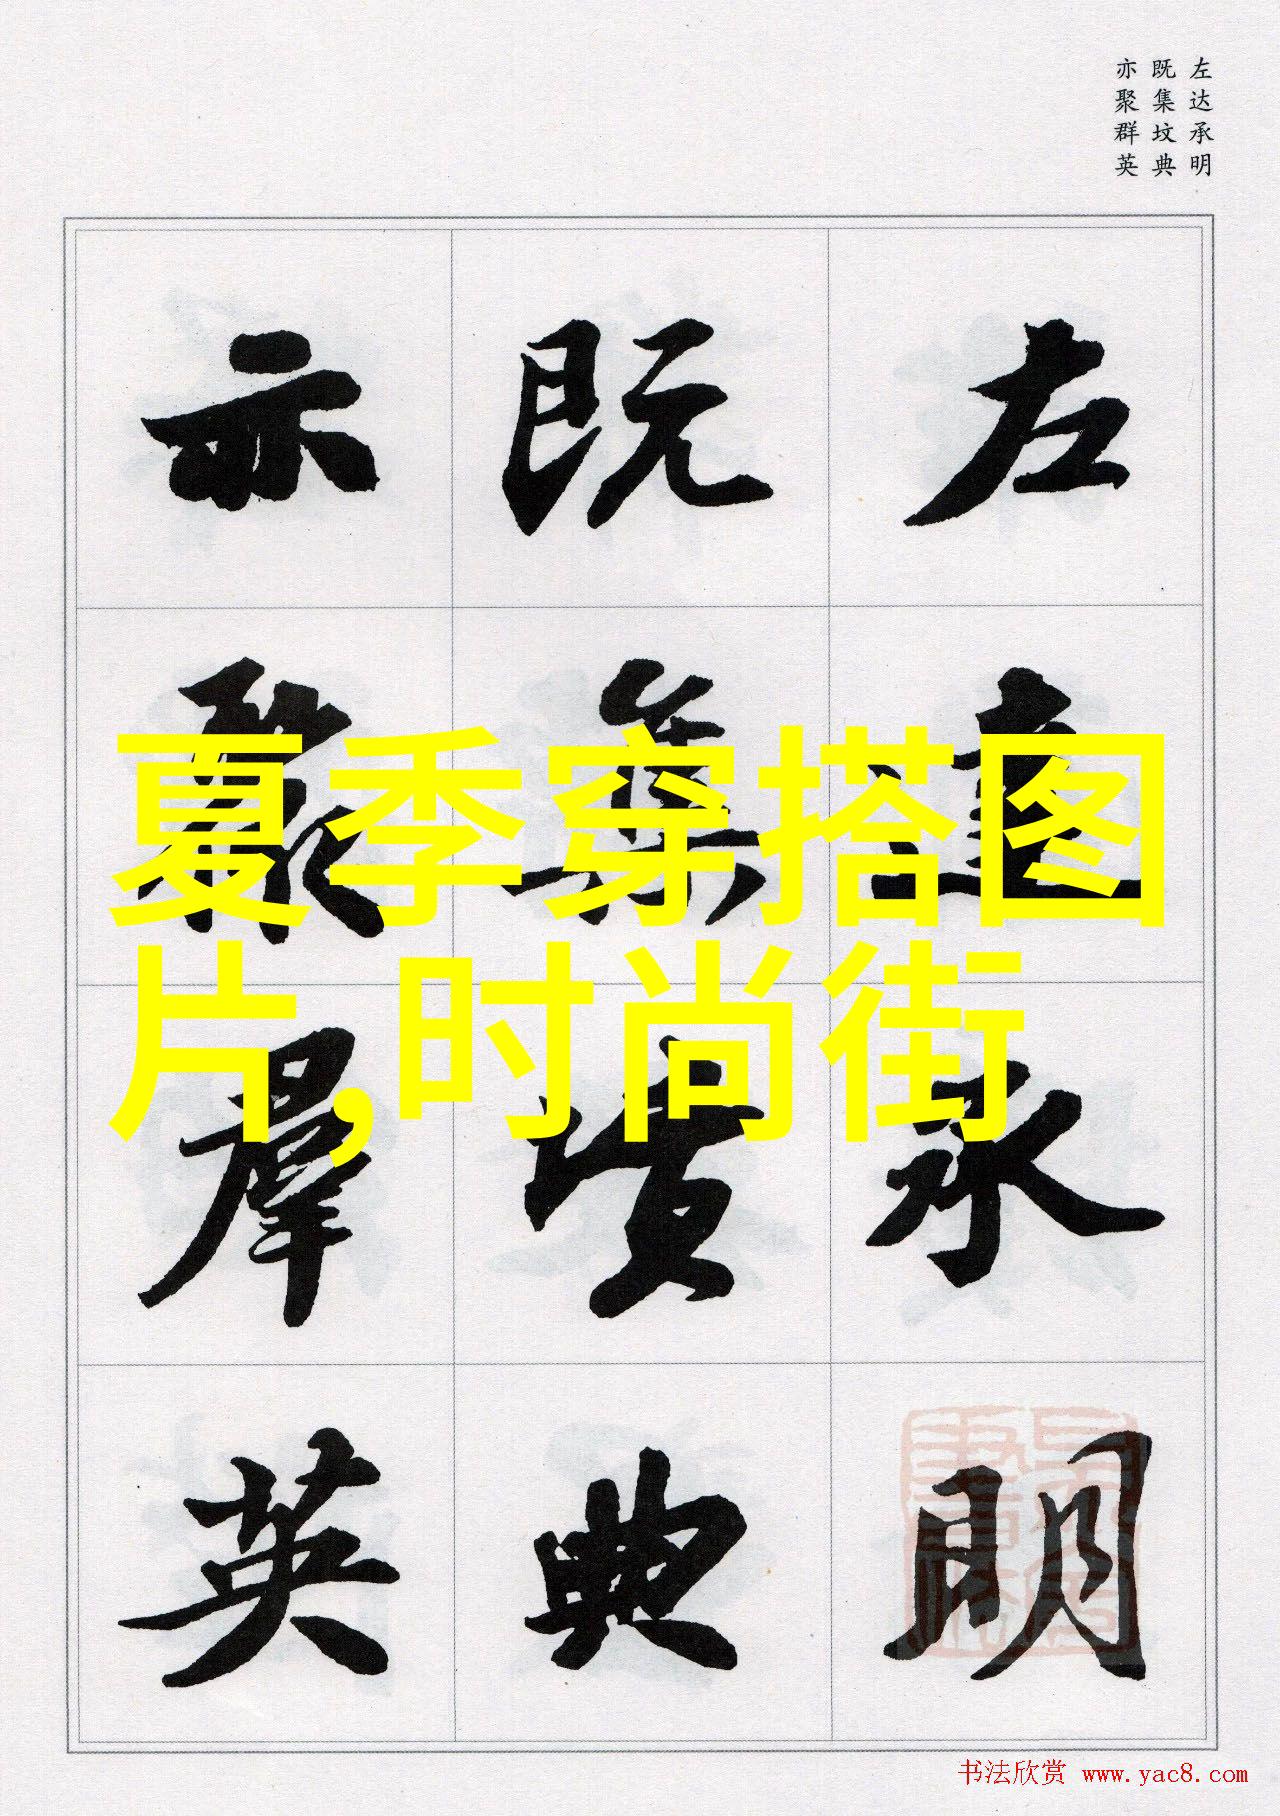 左达承明
既集坟典
亦聚群英
左达承明
既集坟典
亦聚群英
夏季穿搭图
片,时尚街
书法欣赏 www.yac8.com